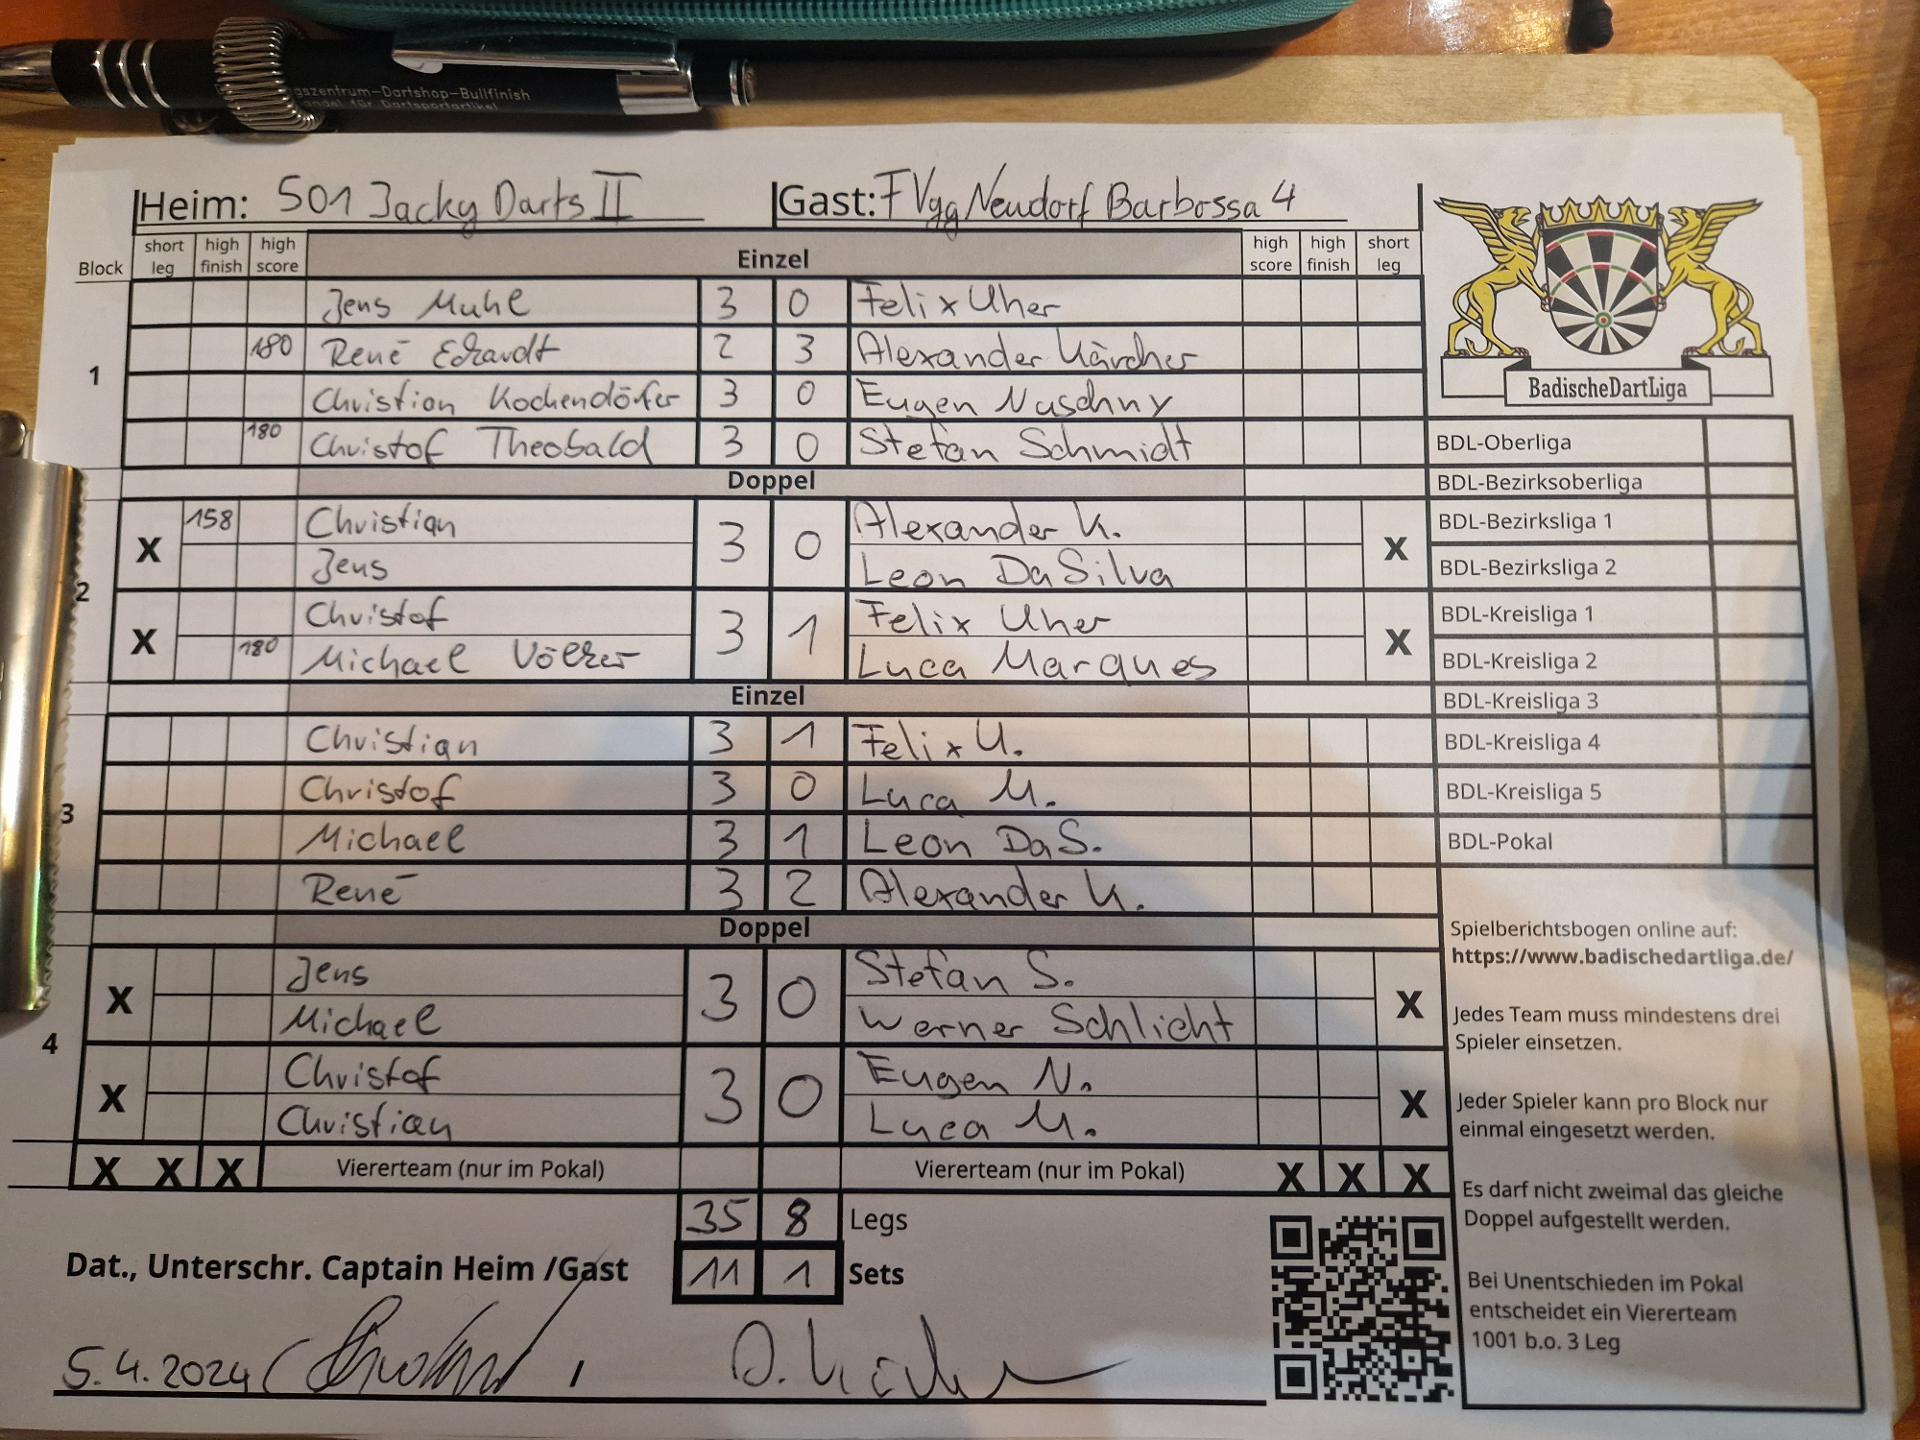 gszentrum-Dartshop-Bullfinish
andel für Dartsportartikel
Heim: 501 Jacky Darts II Gast: FVgg Neudorf Barbossa 4
Block short leg high finish high score Einzel high score high finish short leg
1
Jens Muhl 3 0 Felix Uher
180 René Eckardt 2 3 Alexander Kärcher
Christian Kochendörfer 3 0 Eugen Naschny
180 Christof Theobald 3 0 Stefan Schmidt
Doppel
2
X 158 Christian 3 0 Alexander K. X
Jens Leon DaSilva
X Christof 3 1 Felix Uher X
180 Michael Völker Luca Marques
Einzel
3
Christian 3 1 Felix U.
Christof 3 0 Luca M.
Michael 3 1 Leon DaS.
René 3 2 Alexander K.
Doppel
4
X Jens 3 0 Stefan S. X
Michael Werner Schlicht
X Christof 3 0 Eugen N. X
Christian Luca M.
X X X Viererteam (nur im Pokal) Viererteam (nur im Pokal) X X X
35 8 Legs
11 1 Sets
Dat., Unterschr. Captain Heim /Gast
5.4.2024
BadischeDartLiga
BDL-Oberliga
BDL-Bezirksoberliga
BDL-Bezirksliga 1
BDL-Bezirksliga 2
BDL-Kreisliga 1
BDL-Kreisliga 2
BDL-Kreisliga 3
BDL-Kreisliga 4
BDL-Kreisliga 5
BDL-Pokal
Spielberichtsbogen online auf:
https://www.badischedartliga.de/
Jedes Team muss mindestens drei
Spieler einsetzen.
Jeder Spieler kann pro Block nur
einmal eingesetzt werden.
Es darf nicht zweimal das gleiche
Doppel aufgestellt werden.
Bei Unentschieden im Pokal
entscheidet ein Viererteam
1001 b.o. 3 Leg